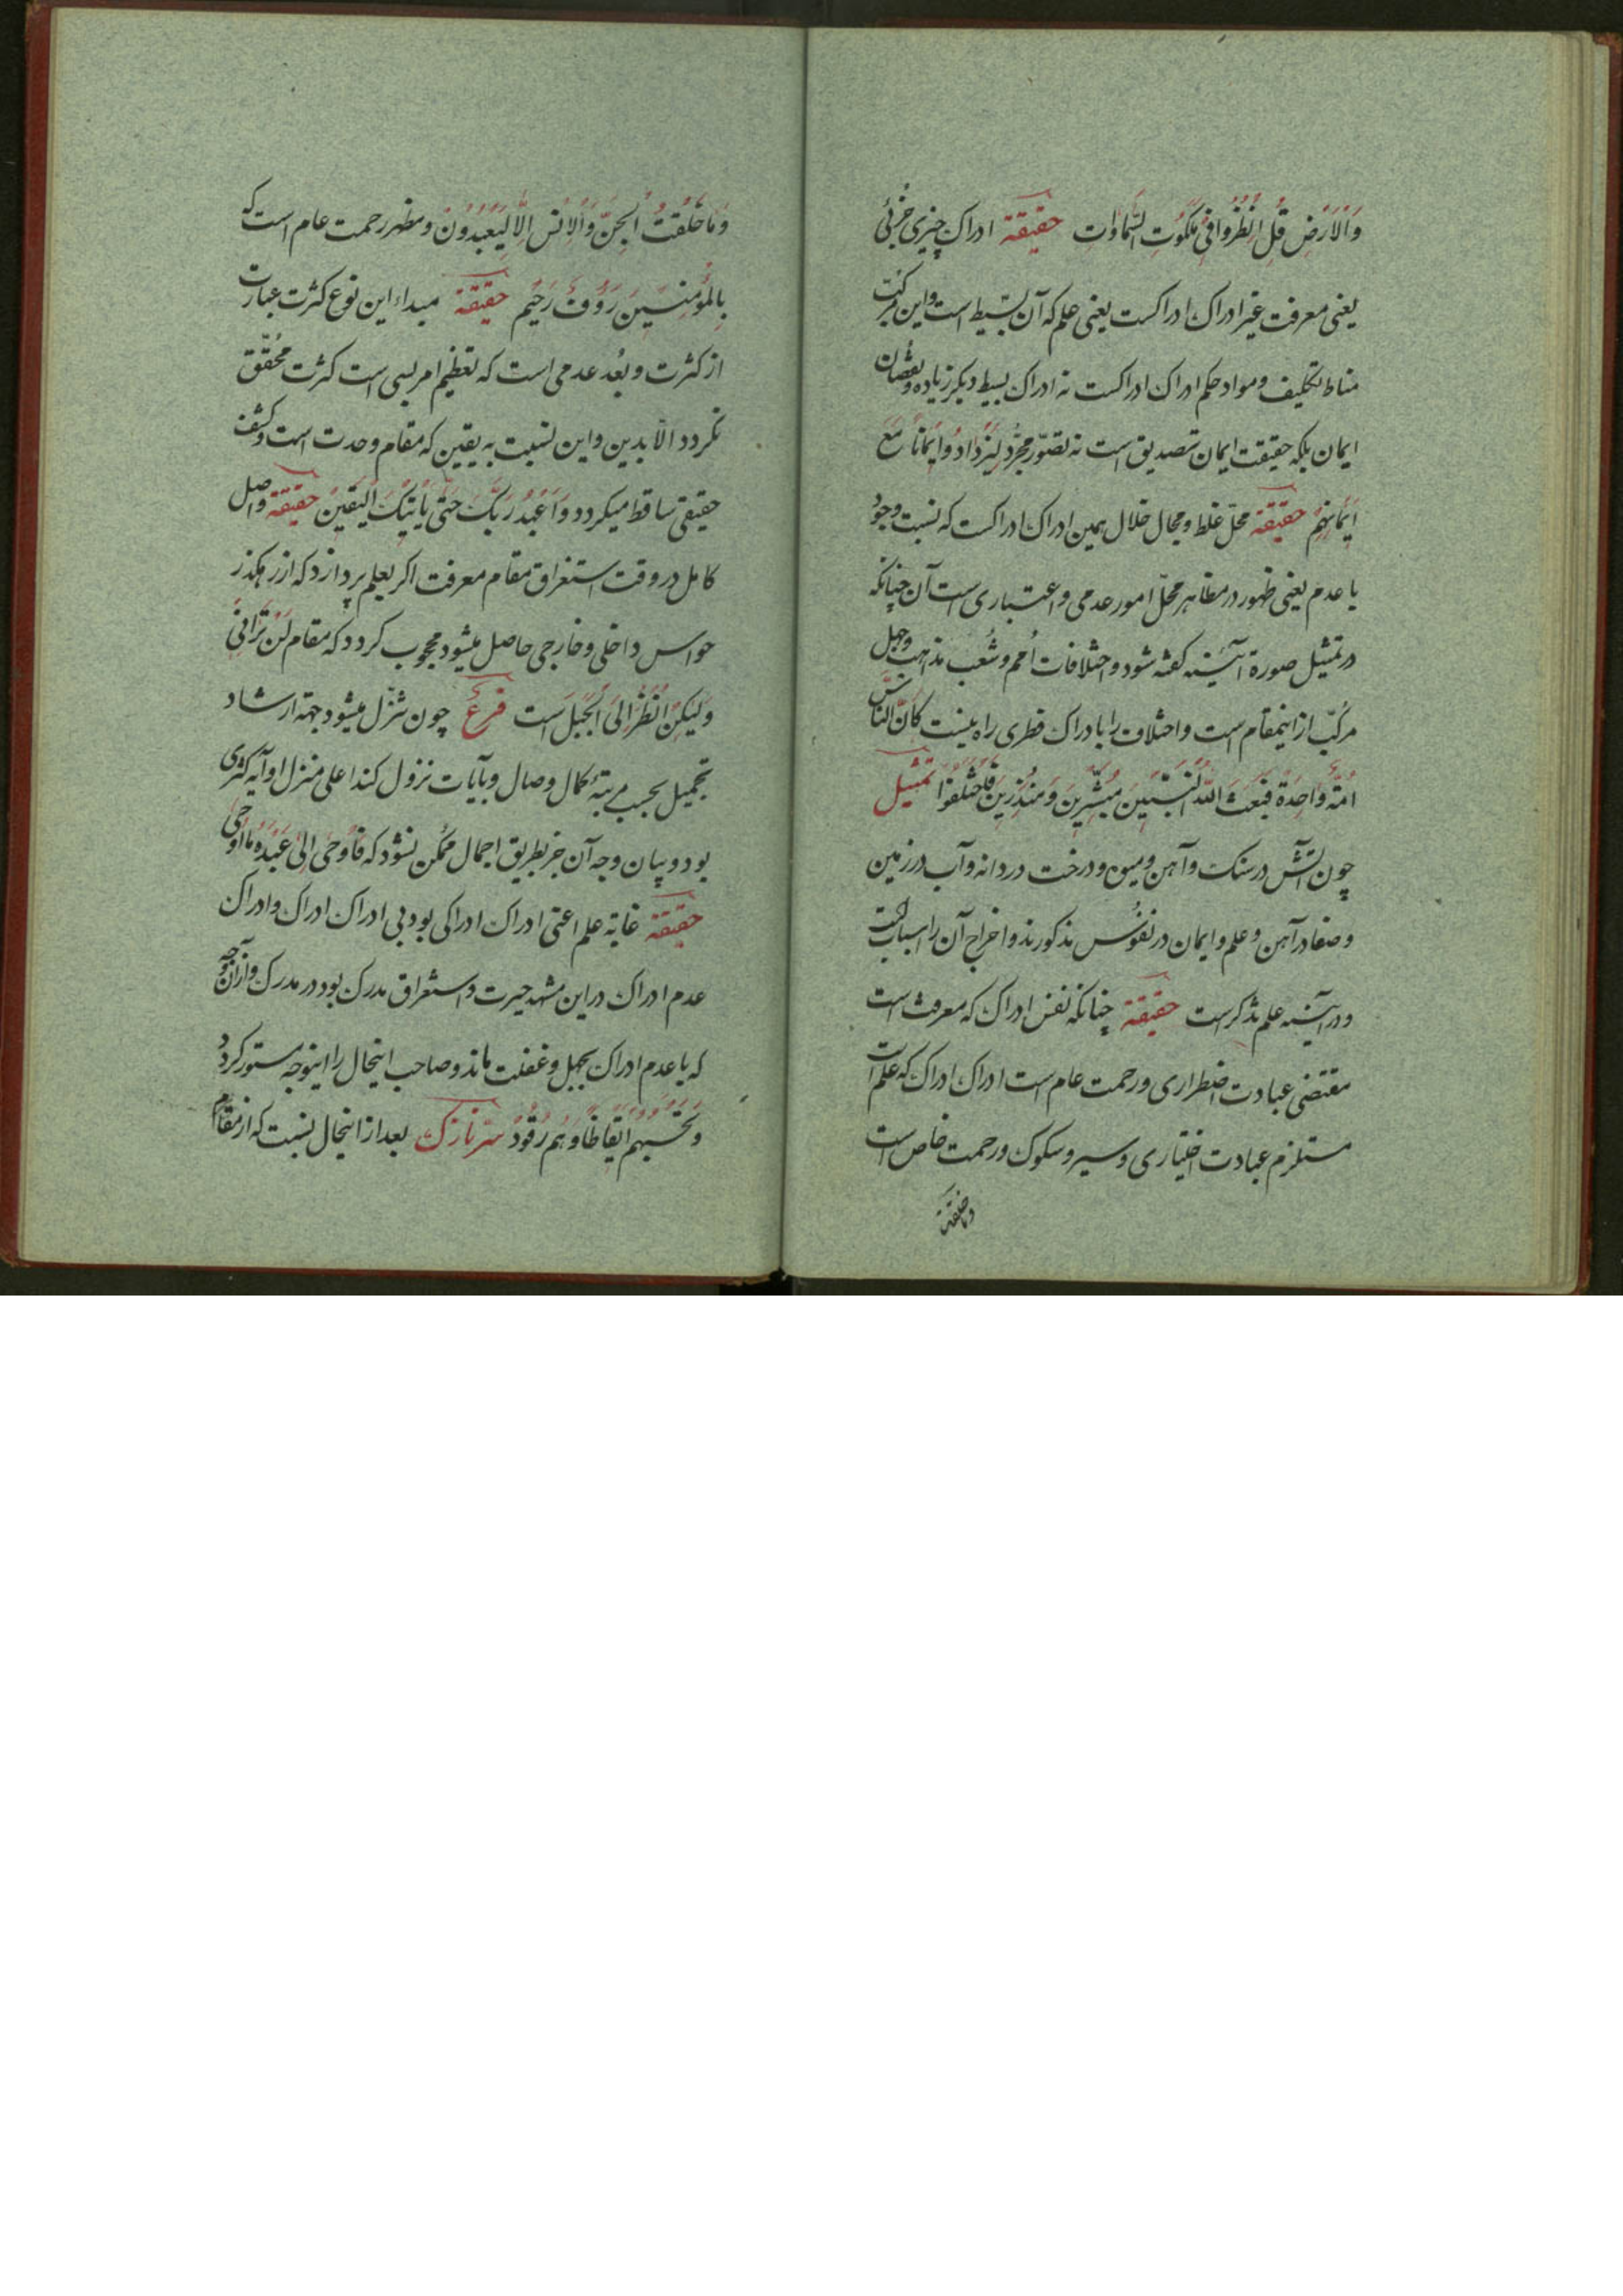 وَالْاَرْضِ قُلِ انْظُرُوا فِی مَلَکُوتِ السَّمٰوَاتِ حقیقة ادراک چیزی جزئی
یعنی معرفت غیر ادراک ادراکست یعنی علم که آن بسیط است و این مرکب
مناط تکلیف و مواد حکم ادراک ادراکست نه ادراک بسیط دیگر زیاده و نقصان
ایمان بلکه حقیقت ایمان تصدیق است نه تصوّر مجرّد لِیَزْدَادُوا اِیمَانًا مَعَ
اِیمَانِهِمْ حقیقة محلّ غلط و مجال ضلال همین ادراک ادراکست که نسبت وجود
با عدم یعنی ظهور در مظاهر محلّ امور عدمی و اعتباری است آن چنانکه
در تمثیل صورة آیینه گفته شود و اختلافات اُمم و شُعب مذاهب و جهل
مرکّب از اینمقام است و اختلاف را با ادراک فطری راه نیست کَانَ النَّاسُ
اُمَّةً وَاحِدَةً فَبَعَثَ اللهُ النَّبِیِّینَ مُبَشِّرِینَ وَ مُنْذِرِینَ فَاخْتَلَفُوا تمثیل
چون آتش در سنک و آهن و میوه و درخت در دانه و آب در زمین
و صفا در آهن و علم و ایمان در نفوُس مذکورند و اخراج آن را اسبابست
و در آیینه علم تذکرست حقیقة چنانکه نفس ادراک که معرفت است
مقتضی عبادت اضطراری و رحمت عام است ادراک ادراک که علم است
مستلزم عبادت اختیاری و سیر و سلوک و رحمت خاص است
وما خلقت
وَمَا خَلَقْتُ الْجِنَّ وَالْاِنْسَ اِلَّا لِیَعْبُدُونَ و مظهر رحمت عام است که
بِالْمُؤْمِنِینَ رَؤُفٌ رَحِیمٌ حقیقة مبداء این نوع کثرت عبارت
از کثرت و بُعد عدمی است که تعظیم امر نسبی است کثرت محُقّق
نکردد الّا بدین و این نسبت به یقین که مقام وحدت است و کشف
حقیقی ساقط میکردد وَاعْبُدْ رَبَّکَ حَتّٰی یَاْتِیَکَ الْیَقِینُ حقیقة واصل
کامل در وقت استغراق مقام معرفت اکر بعلم پردازد که از رهکذر
حواس داخلی و خارجی حاصل میشود محجوب کردد که مقام لَنْ تَرَانِی
وَلٰکِنِ انْظُرْ اِلَی الْجَبَلِ است فرع چون تنزّل میشود جهة ارشاد
تجمیل بحسب مرتبهٔ کمال وصال و بآیات نزول کند اعلی منزل او آیه کبری
بود و بیان وجه آن جز بطریق اجمال ممُکن نشود که فَاَوْحٰی اِلٰی عَبْدِهِ مَا اَوْحٰی
حقیقة غایة علم اعنی ادراک ادراکی بود بی ادراک ادراک و ادراک
عدم ادراک در این مشهد حیرت و استغراق مدرک بود در مدرک و از آن وجه
که با عدم ادراک بجهل و غفلت ماند و صاحب اینحال را اینوجه مستور کردد
وَتَحْسَبُهُمْ اَیْقَاظًا وَهُمْ رُقُودٌ سرّ نازک بعد از اینحال نسبت که از مقام